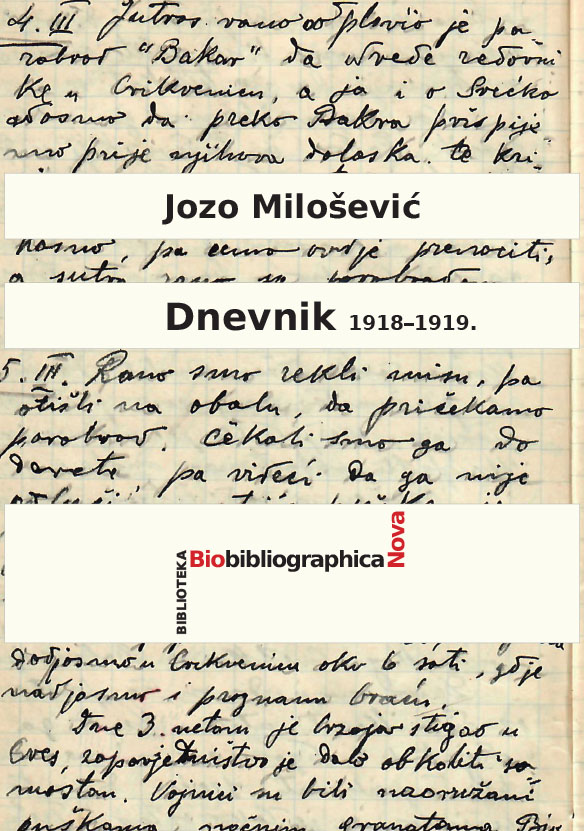 4. III Jutros rano odplovio je pa-
robrod "Bakar" da uvede redovni
u Crikvenicu, a ja i o. Srećko
da preko Bakra prispije-
mo prije njihova dolaska. te kri-
Jozo Milošević
pa ćemo ovdje prenoćiti,
a sutra rano
Dnevnik 1918–1919.
5. III. Rano smo rekli misu, pa
otišli na obalu, da pričekamo
parobrod. Čekali smo ga do
devete, pa videći da ga nije
BIBLIOTEKA
BiobibliographicaNova
dodjosmo u Crikvenicu oko 6 sati, gdje
nadjosmo i prognanu braću.
Dne 3. netom je brzojav stigao u
Cres, zapovjedništvo je dalo obkoliti sa-
mostan. Vojnici su bili naoružani
puškama, ručnim granatama